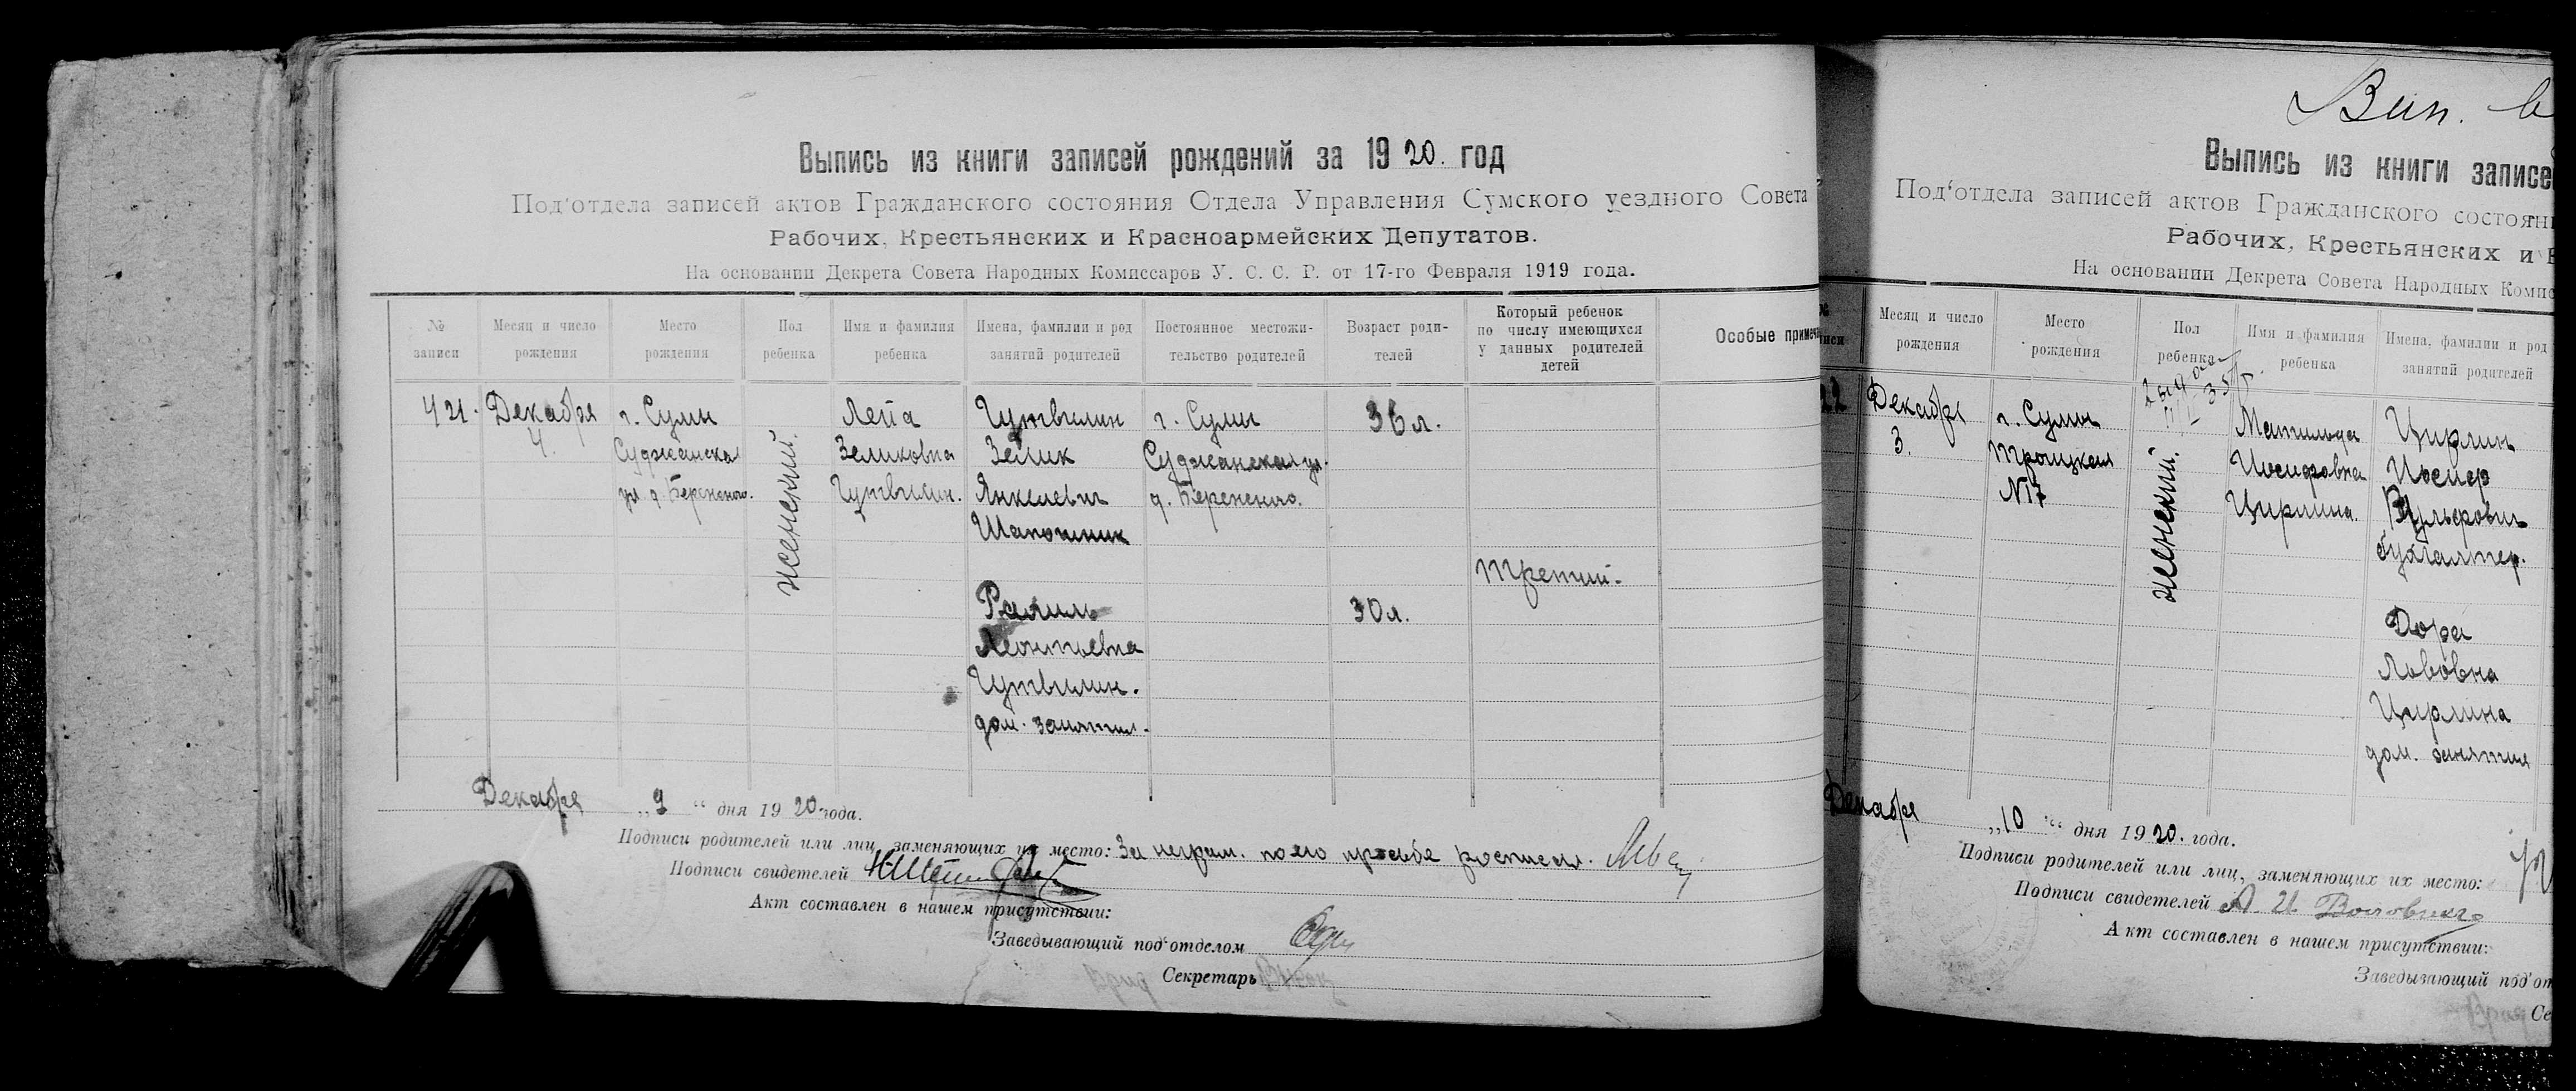 Выпись из книги записей рождений за 1920. год
Под‘отдела записей актов Гражданского состояния Отдела Управления Сумского уездного Совета
Рабочих, Крестьянских и Красноармейских Депутатов.
На основании Декрета Совета Народных Комиссаров У. С. С. Р. от 17-го Февраля 1919 года.
№ записи
Месяц и число рождения
Место рождения
Пол ребенка
Имя и фамилия ребенка
Имена, фамилии и род занятий родителей
Постоянное местожительство родителей
Возраст родителей
Который ребенок по числу имеющихся у данных родителей детей
Особые примеч
421.
Декабря
4.
г. Сумы
Суджанская
ул. д.
женский.
Лейа
Зеликовна
Гутвилин.
Гутвилин
Зелик
Янкелевич
Шапошник
Рахиль
Леонтьевна
Гутвилин.
дом. занятия.
г. Сумы
Суджанская ул.
д.
36 л.
30 л.
третий.
Декабря „9“ дня 1920 года.
Подписи родителей или лиц, заменяющих их место: За неграм. по его просьбе
Подписи свидетелей
Акт составлен в нашем присутствии:
Заведывающий под‘отделом
Секретарь
Вып. в
Выпись из книги записе
Под‘отдела записей актов Гражданского состоян
Рабочих, Крестьянских и
На основании Декрета Совета Народных Комис
Месяц и число рождения
Место рождения
Пол ребенка
Имя и фамилия ребенка
Имена, фамилии и род занятий родителей
22
Декабря
3.
г. Сумы
Троицкая
№17
женский.
Матильда
Иосифовна
Цирлина.
Цирлин
Иосиф
Вульфович
бухгалтер.
Дора
Львовна
Цирлина
дом. занятия
Декабря „10“ дня 1920. года.
Подписи родителей или лиц, заменяющих их место:
Подписи свидетелей А И
Акт составлен в нашем присутствии:
Заведывающий под‘от
Се